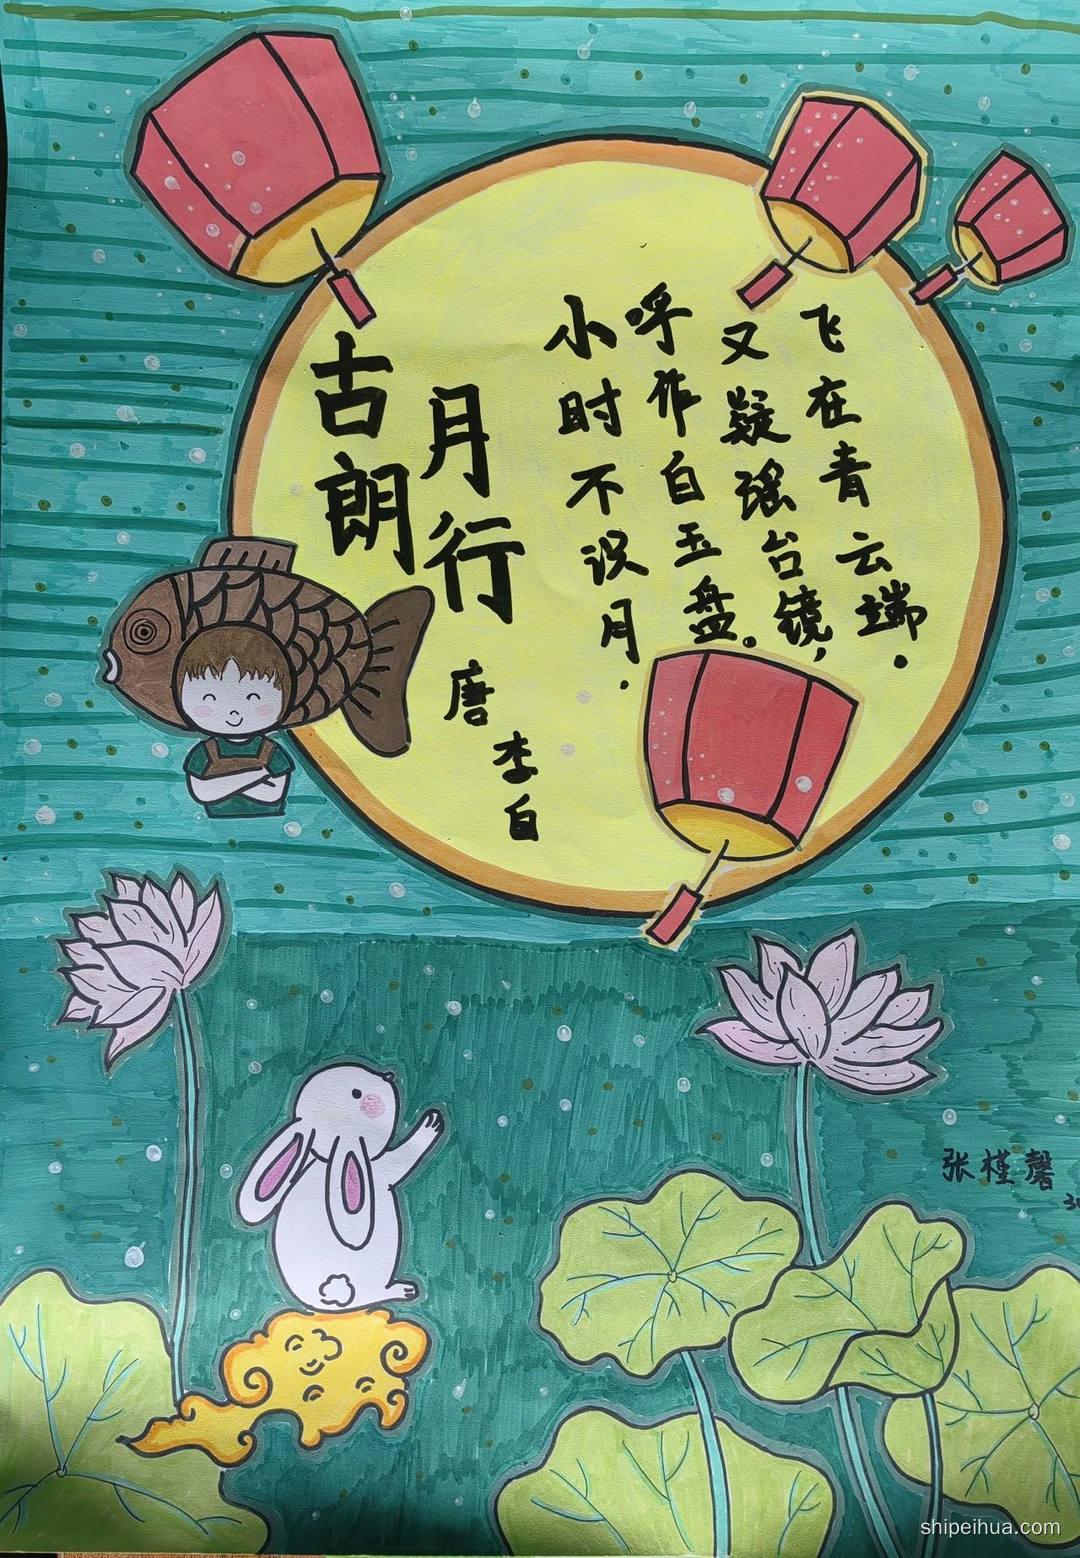 古朗
月行
唐
李白
小时不识月.
呼作白玉盘.
又疑瑶台镜,
飞在青云端.
张槿馨
shipeihua.com